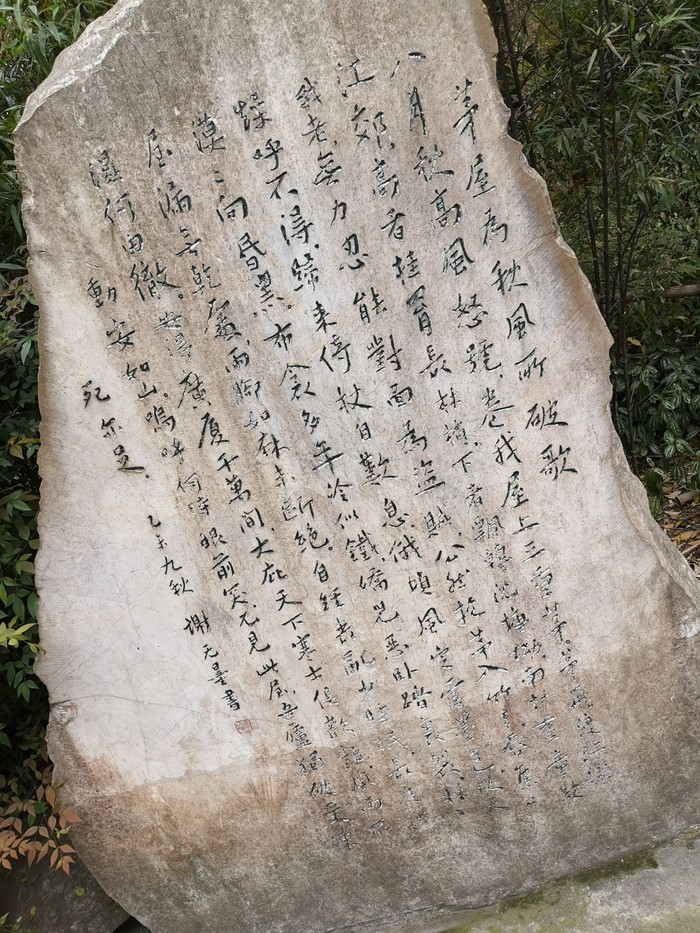 茅屋為秋風所破歌
八月秋高風怒號，卷我屋上三重茅。茅飛渡江灑
江郊，高者挂罥長林梢，下者飄轉沉塘坳。南村群童欺
我老無力，忍能對面為盜賊，公然抱茅入竹去。唇焦口
燥呼不得，歸來倚杖自歎息。俄頃風定雲墨色，秋天
漠〻向昏黑。布衾多年冷似鐵，嬌兒惡臥踏裏裂。床
屋漏無乾處，雨脚如麻未斷絕。自經喪亂少睡眠，長夜沾
濕何由徹。安得廣廈千萬間，大庇天下寒士俱歡顏，風雨不
動安如山。嗚呼何時眼前突兀見此屋，吾廬獨破受凍
死亦足。
乙未九秋 謝无量書